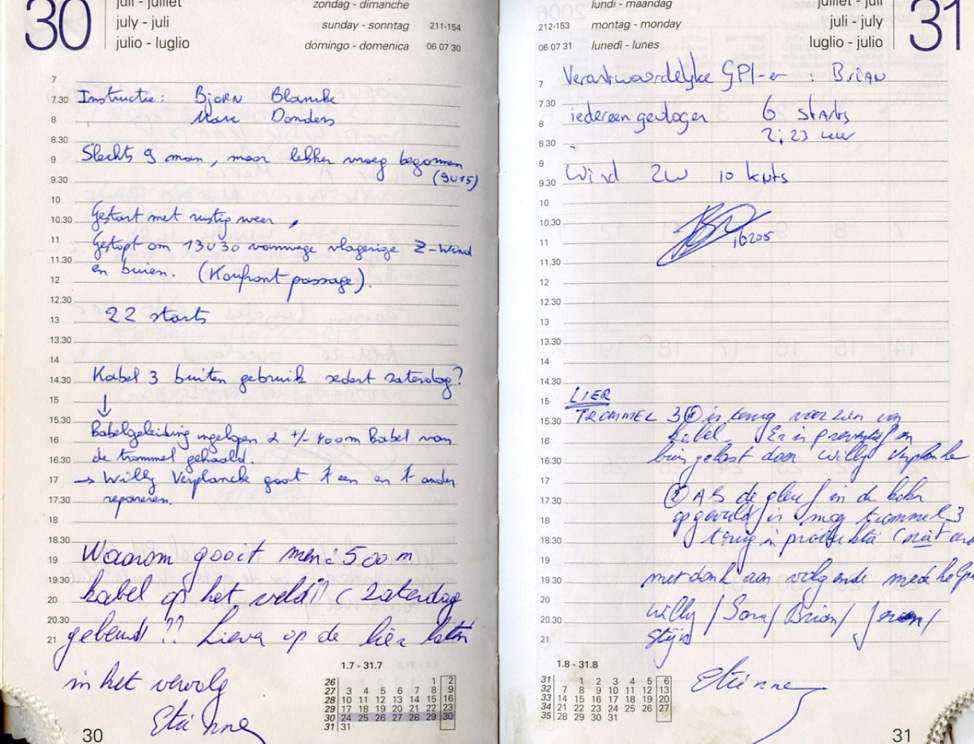 30
juli - juillet
july - juli
julio - luglio
zondag - dimanche
sunday - sonntag 211-154
domingo - domenica 06 07 30
7
7.30 Instructie: Bjorn Blancke
8 Marc Donders
8.30
9 Slechts 9 man, maar lekker vroeg begonnen
9.30 (9u15)
10
10.30 Gestart met rustig weer,
11 Gestopt om 13u30 vanwege vlagerige Z-Wind
11.30 en buien. (Koufront passage).
12
12.30
13 22 starts
13.30
14
14.30 Kabel 3 buiten gebruik sedert zaterdag?
15 ↓
15.30 Kabelgeleiding ingelopen & +/- 400m Kabel van
16 de trommel gehaald.
16.30
17 → Willy Verplancke gaat 't een en 't ander
17.30 repareren.
18
18.30
19 Waarom gooit men ± 500 m
19.30 kabel op het veld?? (Zaterdag
20
20.30 gebeurd ?? Liever op de lier laten
21
in het vervolg
Etienne
1.7 - 31.7
26 1 2
27 3 4 5 6 7 8 9
28 10 11 12 13 14 15 16
29 17 18 19 20 21 22 23
30 24 25 26 27 28 29 30
31 31
30
lundi - maandag
212-153 montag - monday
06 07 31 lunedi - lunes
juillet - juli
juli - july
luglio - julio
31
7 Verantwoordelijke GPL-er : Brian
7.30 iedereen gevlogen 6 starts
8
8.30 2,23 uur
9
9.30 Wind ZW 10 knts
10
10.30
11 16205
11.30
12
12.30
13
13.30
14
14.30
15 LIER
15.30 TROMMEL 3 ① is terug voorzien van
16 kabel. Er is preventief en
16.30 bijgelast door Willy Verplancke
17
17.30 ② Als de gleuf in de
18 opgevuld is mag trommel 3
18.30 terug in produktie (niet
19
19.30 met dank aan volgende medehelp
20 Willy / / Brian / Jeroen /
20.30 Stijn
21
Etienne
1.8 - 31.8
31 1 2 3 4 5 6
32 7 8 9 10 11 12 13
33 14 15 16 17 18 19 20
34 21 22 23 24 25 26 27
35 28 29 30 31
31